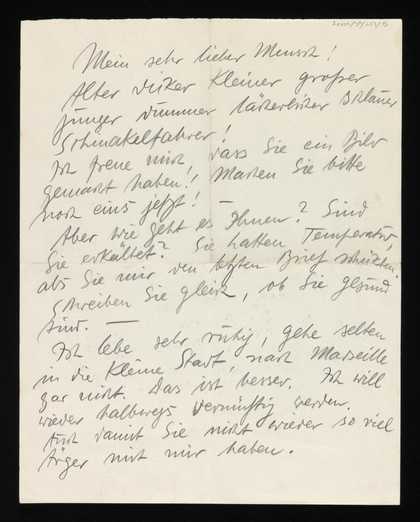 Mein sehr lieber Mensch!
Alter dicker kleiner grosser
junger dummer lächerlicher schlauer
Schnakelfahrer!
Ich freue mich, dass Sie ein Bild
gemacht haben! Machen Sie bitte
noch eins jetzt!
Aber wie geht es Ihnen? Sind
Sie erkältet? Sie hatten Temperatur,
als Sie mir den letzten Brief schickten.
Schreiben Sie gleich, ob Sie gesund
sind. —
Ich lebe sehr ruhig, gehe selten
in die kleine Stadt, nach Marseille
gar nicht. Das ist besser. Ich will
wieder halbwegs vernünftig werden.
Auch damit Sie nicht wieder so viel
Ärger mit mir haben.